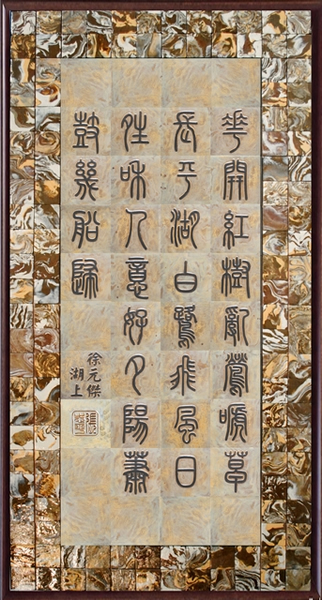 華開紅樹亂鶯嗁草
長平湖白鷺飛風日
夝和人意好夕陽蕭
鼓幾船歸
徐元傑
湖上